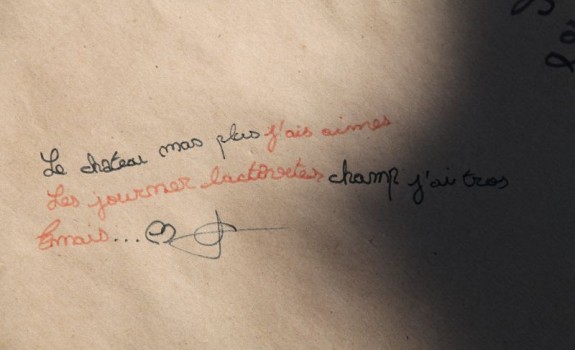 Le château mas plus j'ais aimes
Les journer champ j'ai tros
Emais...